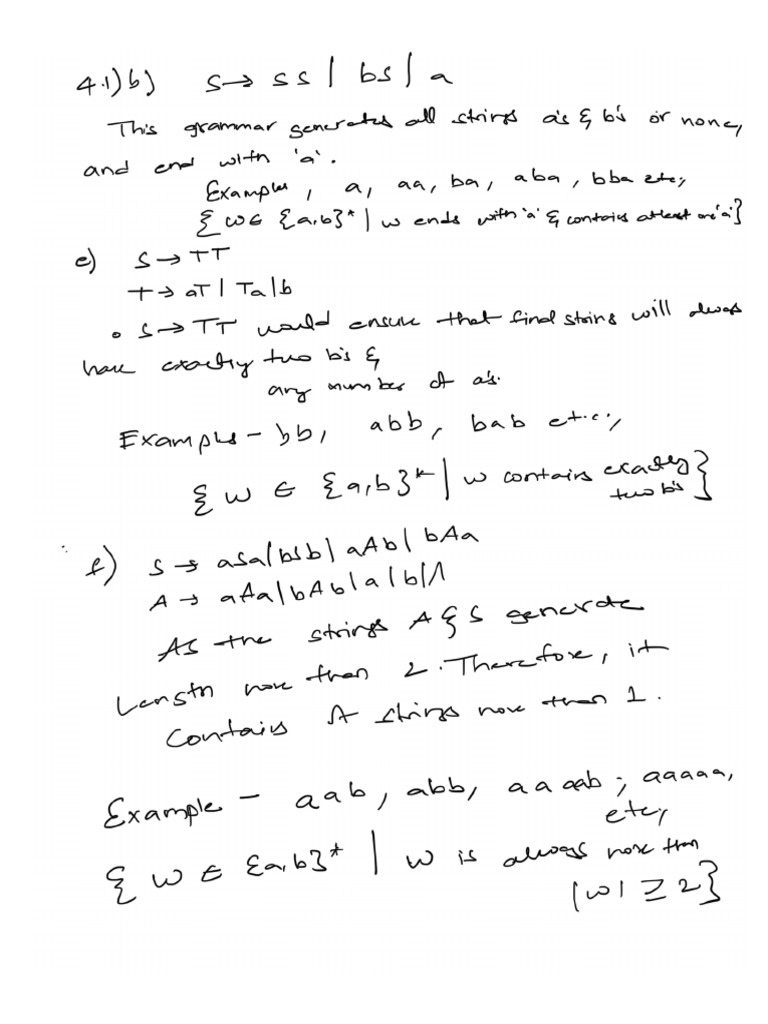 4.1) b) S → SS | bS | a
This grammar generates all strings a's & b's or none,
and end with 'a'.
Examples, a, aa, ba, aba, bba etc,
{ w ∈ {a,b}* | w ends with 'a' & contains atleast one 'a' }
e) S → TT
T → aT | Ta | b
• S → TT would ensure that final string will always
have exactly two b's &
any number of a's.
Example - bb, abb, bab etc.,
{ w ∈ {a,b}* | w contains exactly
two b's }
f) S → aSa | bSb | aAb | bAa
A → aAa | bAb | a | b | Λ
As the strings A & S generate
Length more than 2. Therefore, it
contains A strings more than 1.
Example - aab, abb, aaaab, aaaaa,
etc,
{ w ∈ {a,b}* | w is always more than
|w| ≥ 2 }